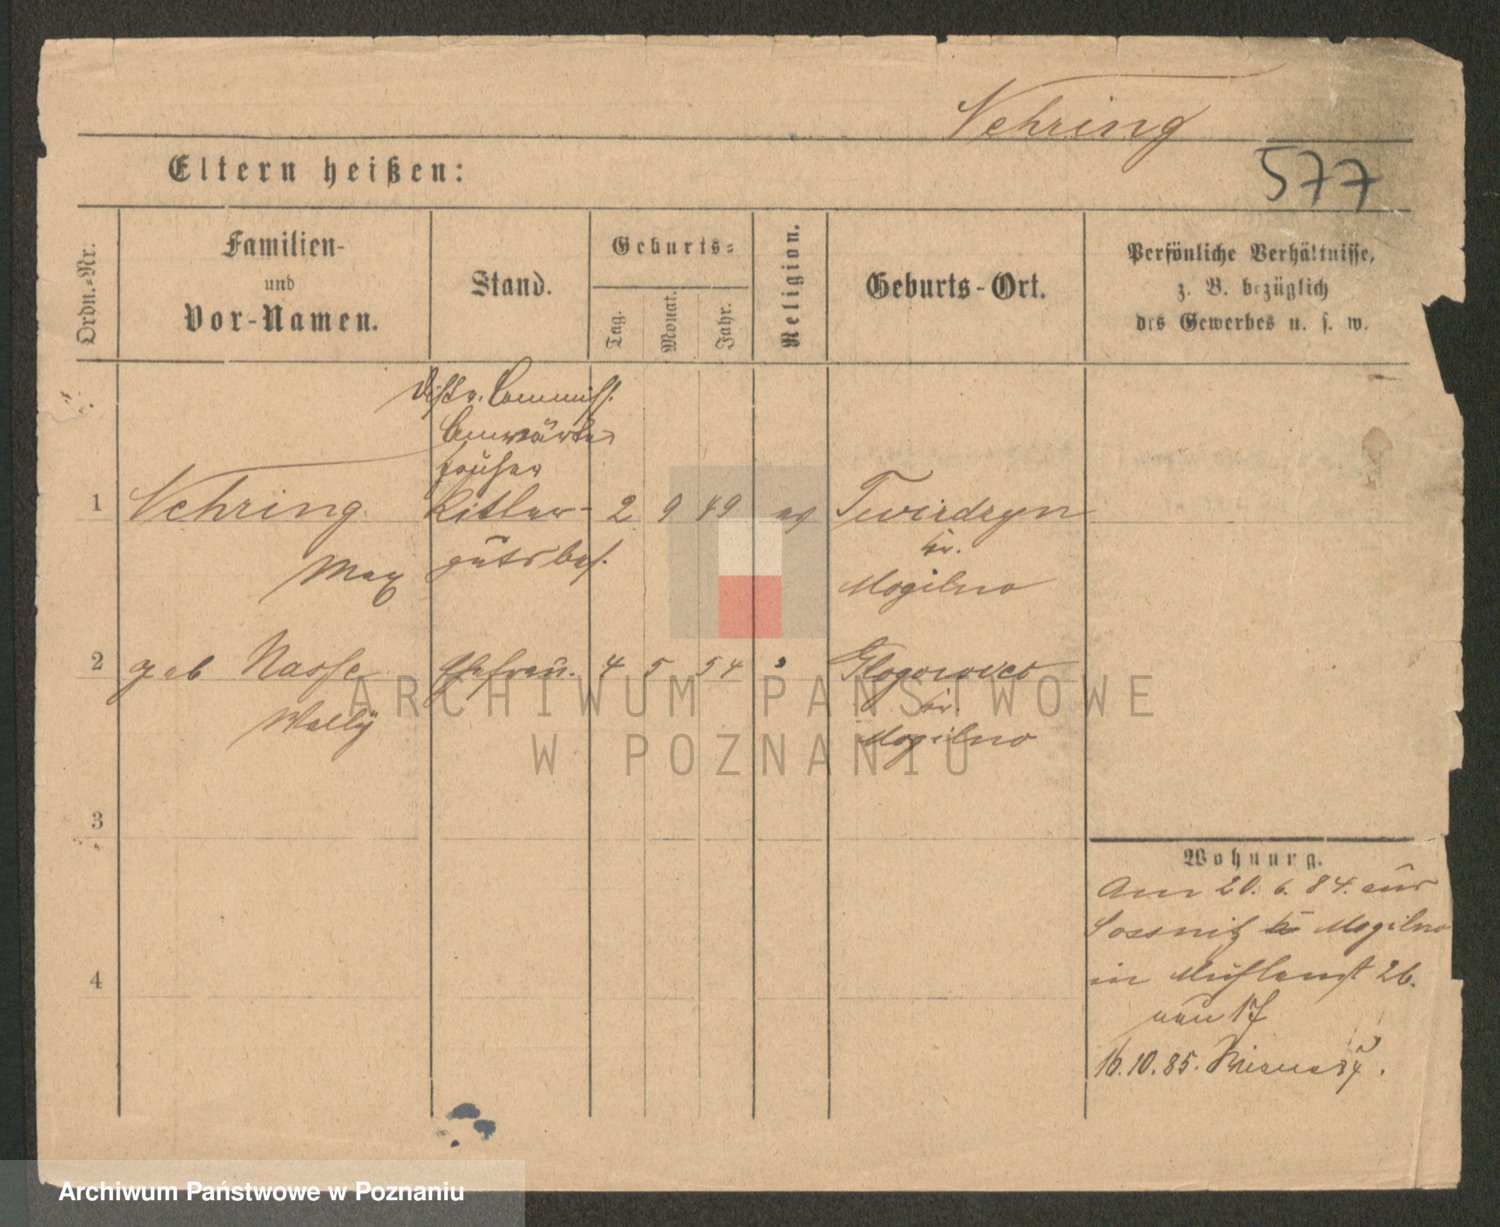 Nehring
577
Eltern heißen:
Ordn.-Nr.
Familien-
und
Vor-Namen.
Stand.
Geburts-
Tag.
Monat.
Jahr.
Religion.
Geburts-Ort.
Persönliche Verhältnisse,
z. B. bezüglich
des Gewerbes u. s. w.
Distr. Commiss.
Anwärter
früher
1 Nehring Ritter- 2 9 49 ev Twierdzyn
Max gutsbes. Kr.
Mogilno
2 geb Nasse Ehefrau. 4 5 54 " Glogowiec
Wally Kr.
Mogilno
3
4
Wohnung.
Am 20. 6. 84. aus
Mogilno
in Mühlenst 26.
neu 17
16.10.85.
ARCHIWUM PAŃSTWOWE
W POZNANIU
Archiwum Państwowe w Poznaniu